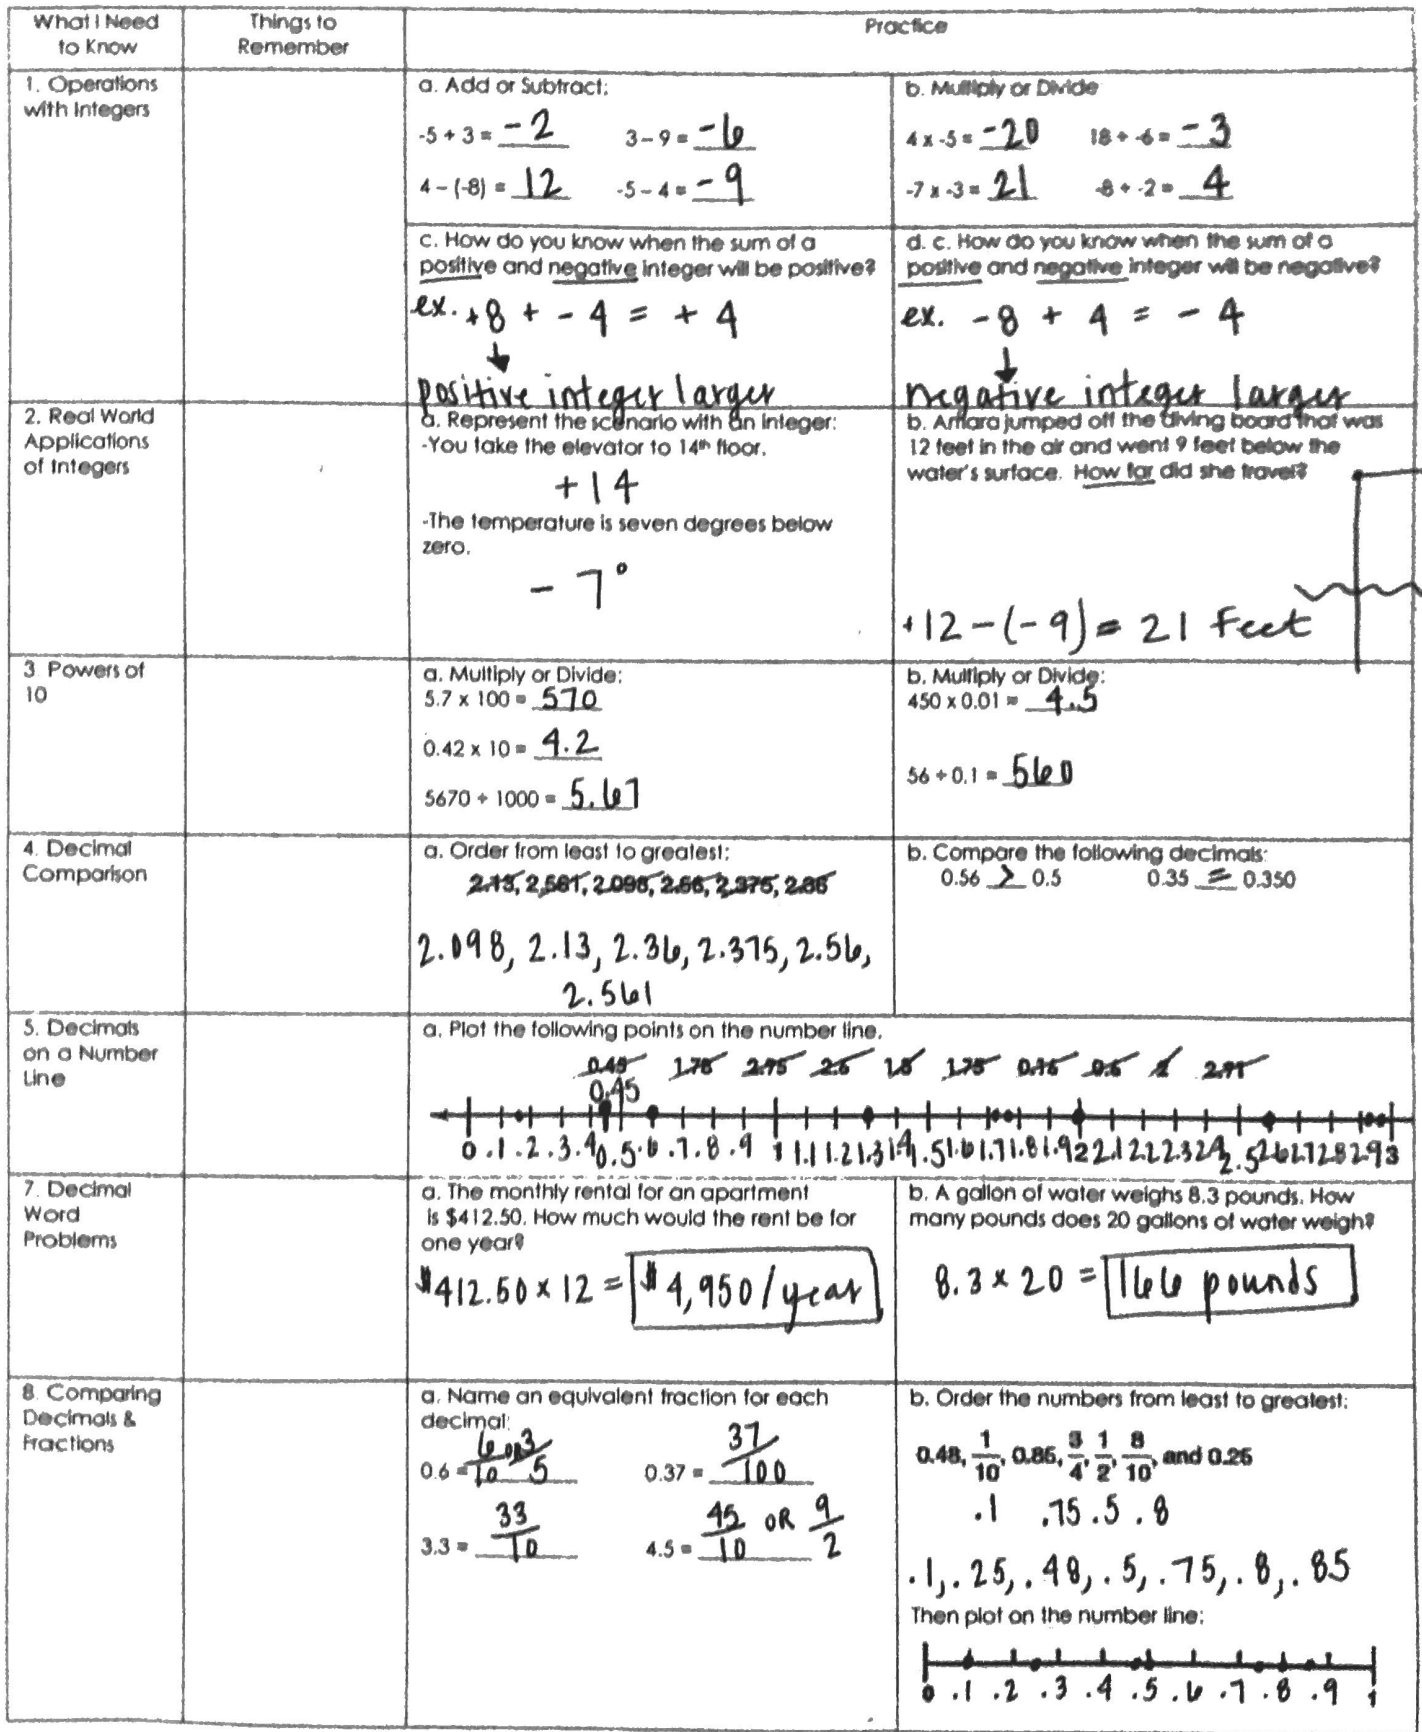 What I Need
to Know
Things to
Remember
Practice
1. Operations
with Integers
a. Add or Subtract:
-5 + 3 = -2 3 – 9 = -6
4 – (-8) = 12 -5 – 4 = -9
b. Multiply or Divide
4 x -5 = -20 18 ÷ -6 = -3
-7 x -3 = 21 -8 ÷ -2 = 4
c. How do you know when the sum of a
positive and negative integer will be positive?
ex. +8 + - 4 = + 4
positive integer larger
d. c. How do you know when the sum of a
positive and negative integer will be negative?
ex. -8 + 4 = - 4
negative integer larger
2. Real World
Applications
of Integers
a. Represent the scenario with an integer:
-You take the elevator to 14th floor.
+14
-The temperature is seven degrees below
zero.
- 7°
b. Amara jumped off the diving board that was
12 feet in the air and went 9 feet below the
water's surface. How far did she travel?
+12 - (-9) = 21 Feet
3 Powers of
10
a. Multiply or Divide:
5.7 x 100 = 570
0.42 x 10 = 4.2
5670 ÷ 1000 = 5.67
b. Multiply or Divide:
450 x 0.01 = 4.5
56 ÷ 0.1 = 560
4. Decimal
Comparison
a. Order from least to greatest:
2.13, 2.561, 2.098, 2.56, 2.375, 2.36
2.098, 2.13, 2.36, 2.375, 2.56,
2.561
b. Compare the following decimals:
0.56 > 0.5 0.35 = 0.350
5. Decimals
on a Number
Line
a. Plot the following points on the number line.
0.45 1.75 2.95 2.6 1.75 0.6 2
0.45
0 .1 .2 .3 .4 0.5 .6 .7 .8 .9 1 1.1 1.2 1.3 1.4 1.5 1.6 1.7 1.8 1.9 2 2.1 2.2 2.3 2.4 2.5 2.6 2.7 2.8 2.9 3
7. Decimal
Word
Problems
a. The monthly rental for an apartment
is $412.50. How much would the rent be for
one year?
$412.50 x 12 = $4,950/year
b. A gallon of water weighs 8.3 pounds. How
many pounds does 20 gallons of water weigh?
8.3 x 20 = 166 pounds
8. Comparing
Decimals &
Fractions
a. Name an equivalent fraction for each
decimal:
0.6 = 6/10 or 3/5 0.37 = 37/100
3.3 = 33/10 4.5 = 45/10 OR 9/2
b. Order the numbers from least to greatest:
0.48, 1/10, 0.85, 3/4, 1/2, 8/10, and 0.25
.1 .75 .5 .8
.1, .25, .48, .5, .75, .8, .85
Then plot on the number line:
0 .1 .2 .3 .4 .5 .6 .7 .8 .9 1